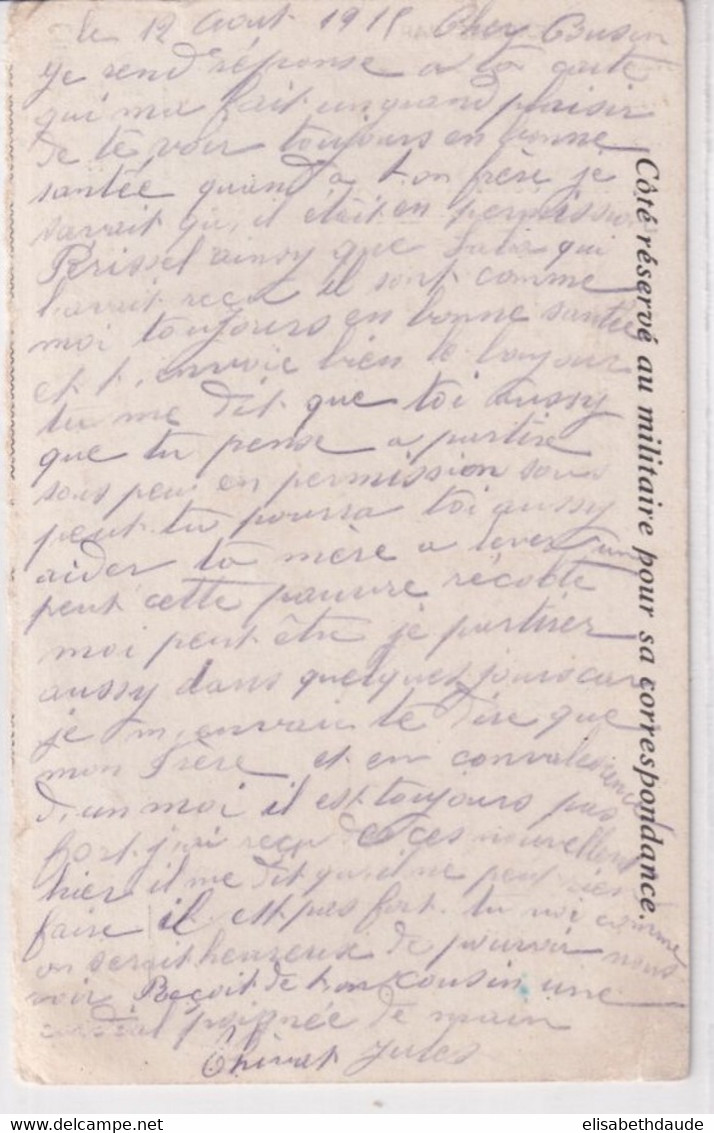 le 12 Aout 191 Cher Cousin
je rend réponse a ta carte
qui ma fait un grand plaisir
de te voir toujours en bonne
santée quand a ton frère je
savait qu, il était en permission
ainsy que qui
l,avait reçu il sont comme
moi toujours en bonne santée
et t, envoie bien le bonjour
tu me dit que toi aussy
que tu pense a partire
sous peu en permission sous
peut tu pourra toi aussy
aider ta mère a lever un
peut cette pauvre récolte
moi peut être je partirer
aussy dans quelques jours car
je m, envait te dire que
mon frère et en convalescence
d, un moi il est toujours pas
fort j,ai reçu de ces nouvelles
hier il me dit qu,il ne peut rien
faire il est pas fort. tu voi comme
on serait heureux de pouvoir nous
voir Reçoit de ton cousin une
poignée de main
Jules
Côté réservé au militaire pour sa correspondance.
elisabethdaude